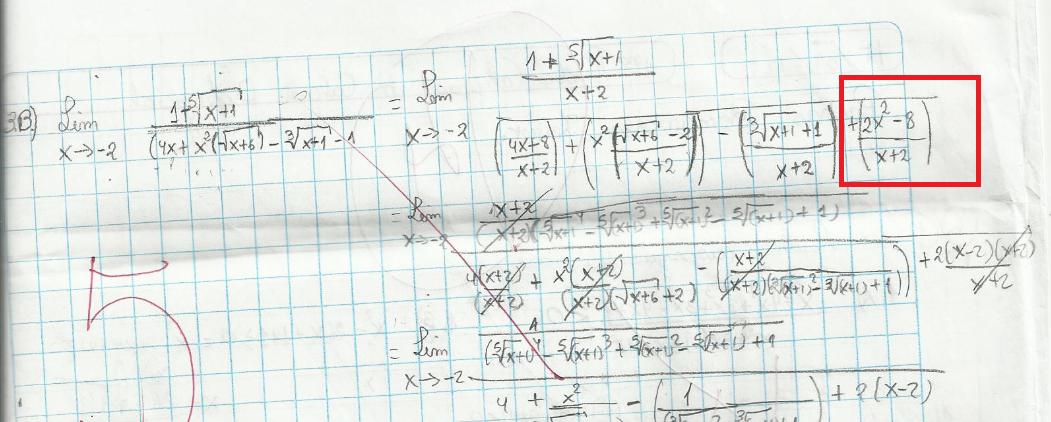 3B) Lim x→-2 (1+⁵√(x+1)) / ((4x+x²(√(x+6))-³√(x+1)-1) = Lim x→-2 ((1+⁵√(x+1))/(x+2)) / (((4x+8)/(x+2))+(x²(√(x+6)-2)/(x+2))-((³√(x+1)+1)/(x+2))+((2x²-8)/(x+2)))
= Lim x→-2 ((x+2)/((x+2)(⁵√(x+1)⁴-⁵√(x+1)³+⁵√(x+1)²-⁵√(x+1)+1))) / (4(x+2)/(x+2)+x²(x+2)/((x+2)(√(x+6)+2))-((x+2)/((x+2)(³√(x+1)²-³√(x+1)+1)))+2(x-2)(x+2)/(x+2))
= Lim x→-2 (1/(⁵√(x+1)⁴-⁵√(x+1)³+⁵√(x+1)²-⁵√(x+1)+1)) / (4+x²/ -(1/ )+2(x-2))
5